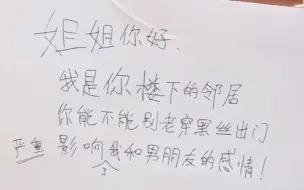 姐姐你好.
我是你楼下的邻居
你能不能别老穿黑丝出门
严重影响了我和男朋友的感情!